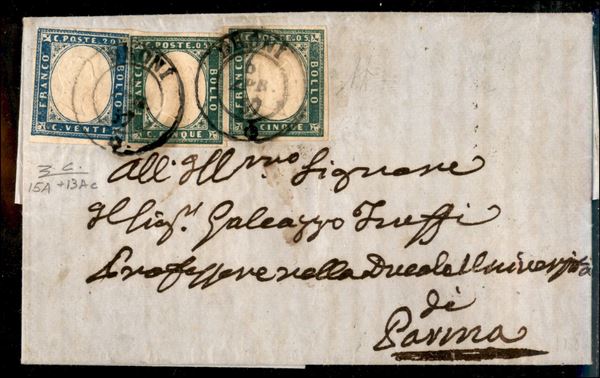 C. POSTE. 20
FRANCO
BOLLO
C. VENTI
C. POSTE. 05
FRANCO
BOLLO
C. CINQUE
C. POSTE. 05
FRANCO
BOLLO
C. CINQUE
APR.
3 C.
15A + 13Ac
All'Ill.mo Signore
Il Sig.r Galeazzo Truffi
Professore nella Ducale Università
di
Parma